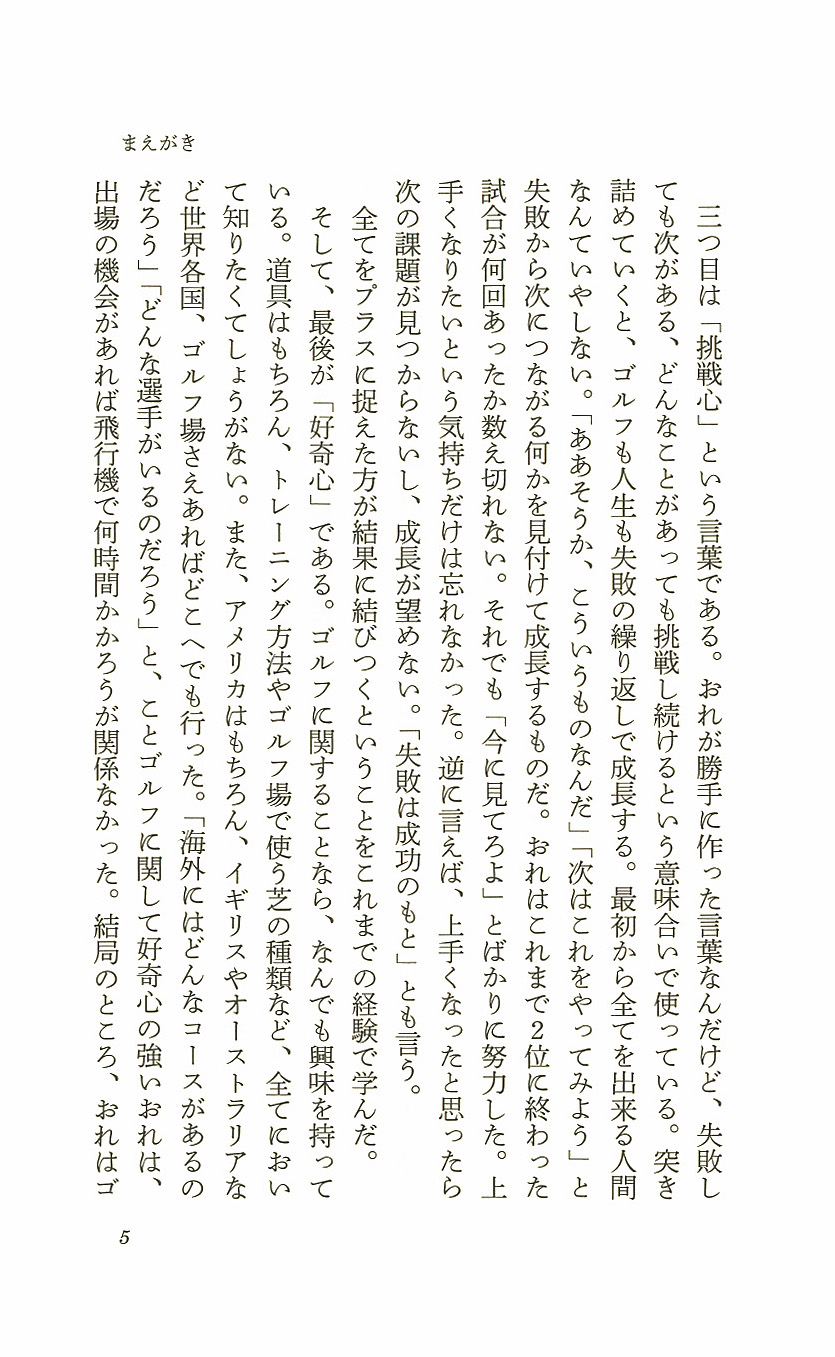 まえがき
三つ目は「挑戦心」という言葉である。おれが勝手に作った言葉なんだけど、失敗し
ても次がある、どんなことがあっても挑戦し続けるという意味合いで使っている。突き
詰めていくと、ゴルフも人生も失敗の繰り返しで成長する。最初から全てを出来る人間
なんていやしない。「ああそうか、こういうものなんだ」「次はこれをやってみよう」と
失敗から次につながる何かを見付けて成長するものだ。おれはこれまで2位に終わった
試合が何回あったか数え切れない。それでも「今に見てろよ」とばかりに努力した。上
手くなりたいという気持ちだけは忘れなかった。逆に言えば、上手くなったと思ったら
次の課題が見つからないし、成長が望めない。「失敗は成功のもと」とも言う。
全てをプラスに捉えた方が結果に結びつくということをこれまでの経験で学んだ。
そして、最後が「好奇心」である。ゴルフに関することなら、なんでも興味を持って
いる。道具はもちろん、トレーニング方法やゴルフ場で使う芝の種類など、全てにおい
て知りたくてしょうがない。また、アメリカはもちろん、イギリスやオーストラリアな
ど世界各国、ゴルフ場さえあればどこへでも行った。「海外にはどんなコースがあるの
だろう」「どんな選手がいるのだろう」と、ことゴルフに関して好奇心の強いおれは、
出場の機会があれば飛行機で何時間かかろうが関係なかった。結局のところ、おれはゴ
5